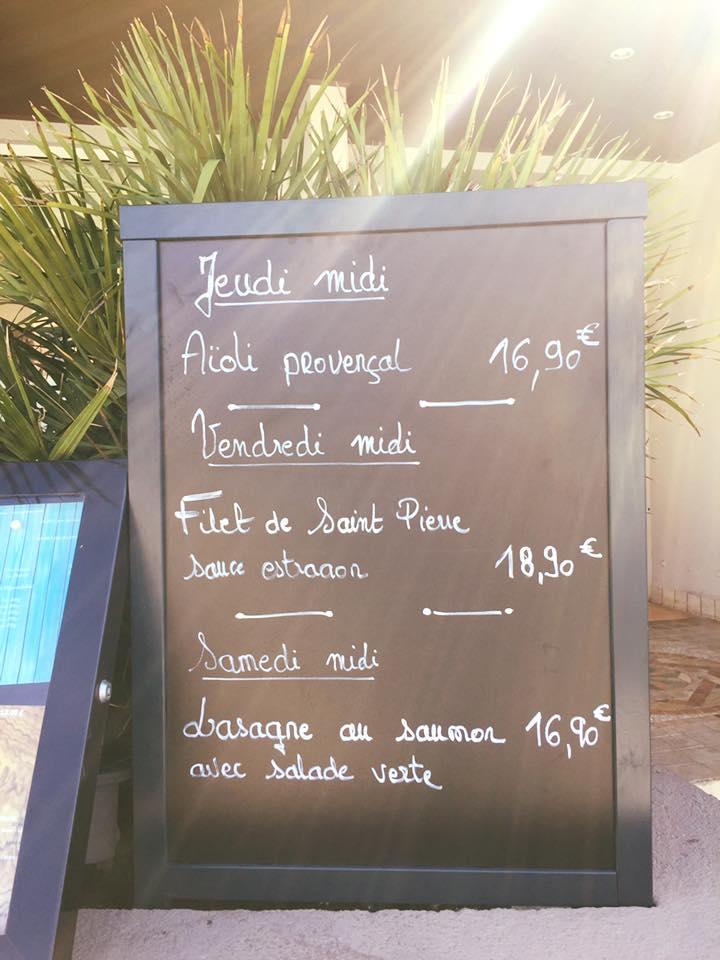 Jeudi midi
Aïoli provençal 16,90€
Vendredi midi
Filet de Saint Pierre
sauce estragon 18,90€
Samedi midi
Lasagne au saumon 16,90€
avec salade verte